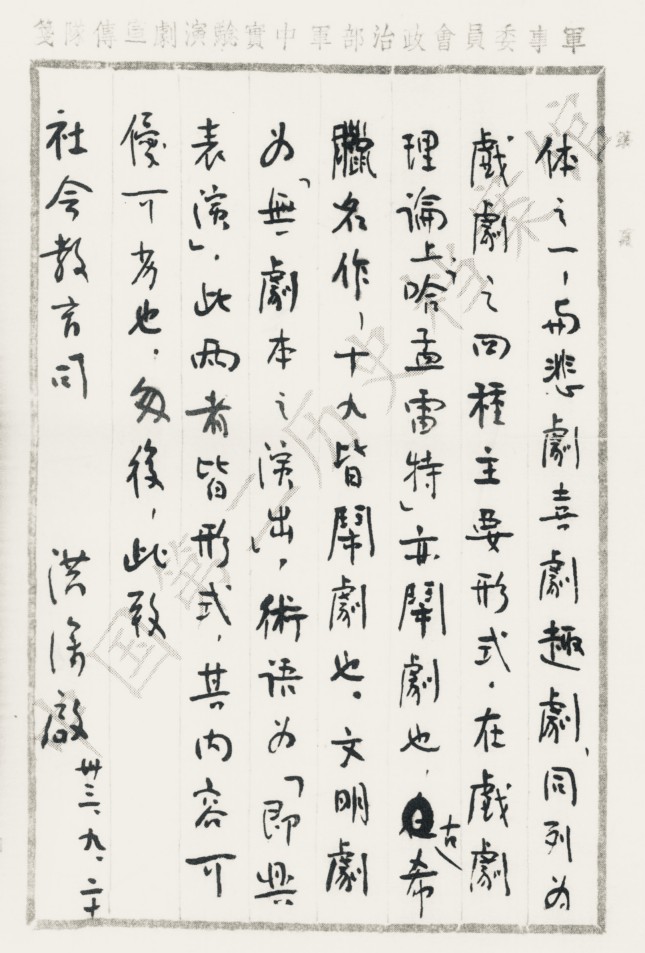 軍事委員會政治部軍中實驗演劇宣傳隊箋
第 頁
体之一，与悲劇喜劇趣劇、同列为
戲劇之四種主要形式。在戲劇
理論上，「哈孟雷特」亦鬧劇也，古希
臘名作，十九皆鬧劇也。文明劇
为「無劇本之演出」，術语为「即興
表演」，此兩者皆形式，其内容可
優可劣也。匆復，此致
社会教育司
洪深啟 卅三、九、二十
中国第二历史档案馆